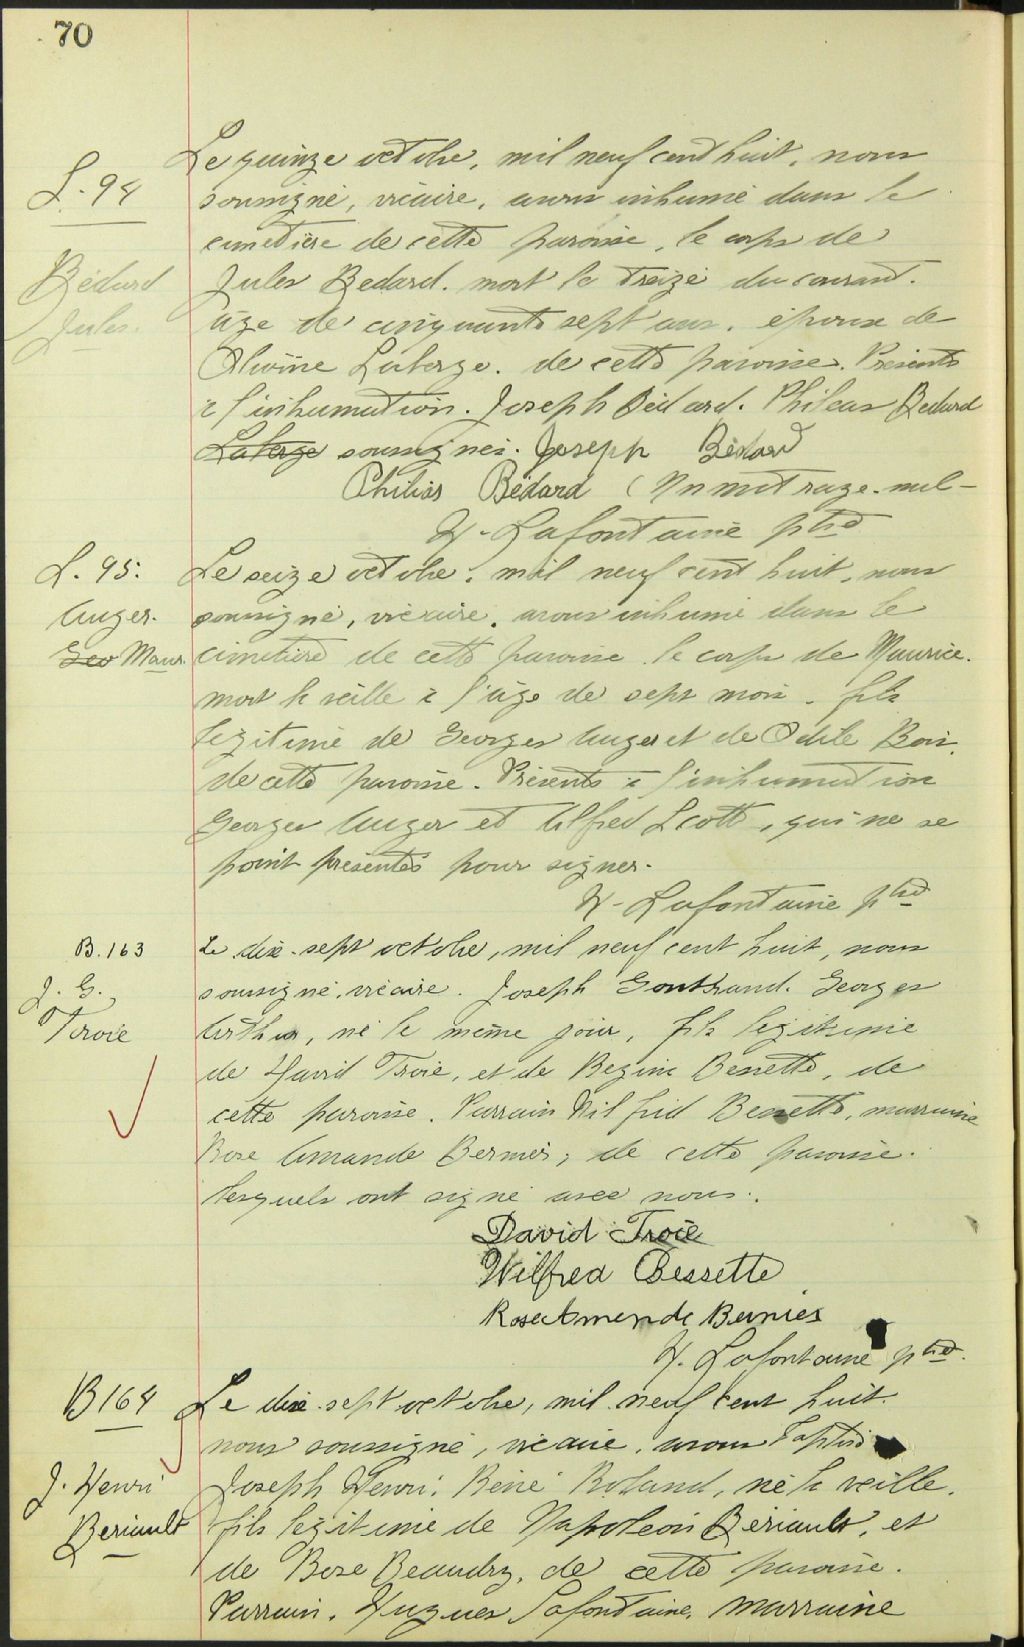 70
S. 94
Bédard
Jules.
Le quinze octobre, mil neuf cent huit, nous
soussigné, vicaire, avons inhumé dans le
cimetière de cette paroisse, le corps de
Jules Bedard. mort le treize du courant.
âgé de cinquante sept ans. époux de
Olivine Laberge. de cette paroisse. Présents
à l'inhumation. Joseph Bédard. Phileas Bedard
Laberge soussignés. Joseph Bédard
Philias Bédard (Un mot rayé nul-
H. Lafontaine ptre
S. 95.
Auger.
Geo Maur.
Le seize octobre, mil neuf cent huit, nous
soussigné, vicaire, avons inhumé dans le
cimetière de cette paroisse le corps de Maurice.
mort la veille à l'âge de sept mois. fils
légitime de Georges Auger et de Odile Bois.
de cette paroisse. Présents à l'inhumation
Georges Auger et Alfred Scott, qui ne se
point présentés pour signer.
H. Lafontaine ptre
B. 163
J. G.
Troie
Le dix-sept octobre, mil neuf cent huit, nous
soussigné vicaire. Joseph Gontrand. Georges
Arthur, né le même jour, fils légitime
de David Troie, et de Regina Bessette, de
cette paroisse. Parrain Wilfrid Bessette, marraine
Rose Amande Bernier, de cette paroisse.
lesquels ont signé avec nous.
David Troie
Wilfred Bessette
Rose Amende Bernier
H. Lafontaine ptre.
B 164
J. Henri
Beriault
Le dix-sept octobre, mil neuf cent huit.
nous soussigné, vicaire, avons baptisé
Joseph Henri. René Roland, né la veille,
fils légitime de Napoléon Bériault, et
de Rose Beaudry, de cette paroisse.
Parrain. Hugues Lafontaine, marraine